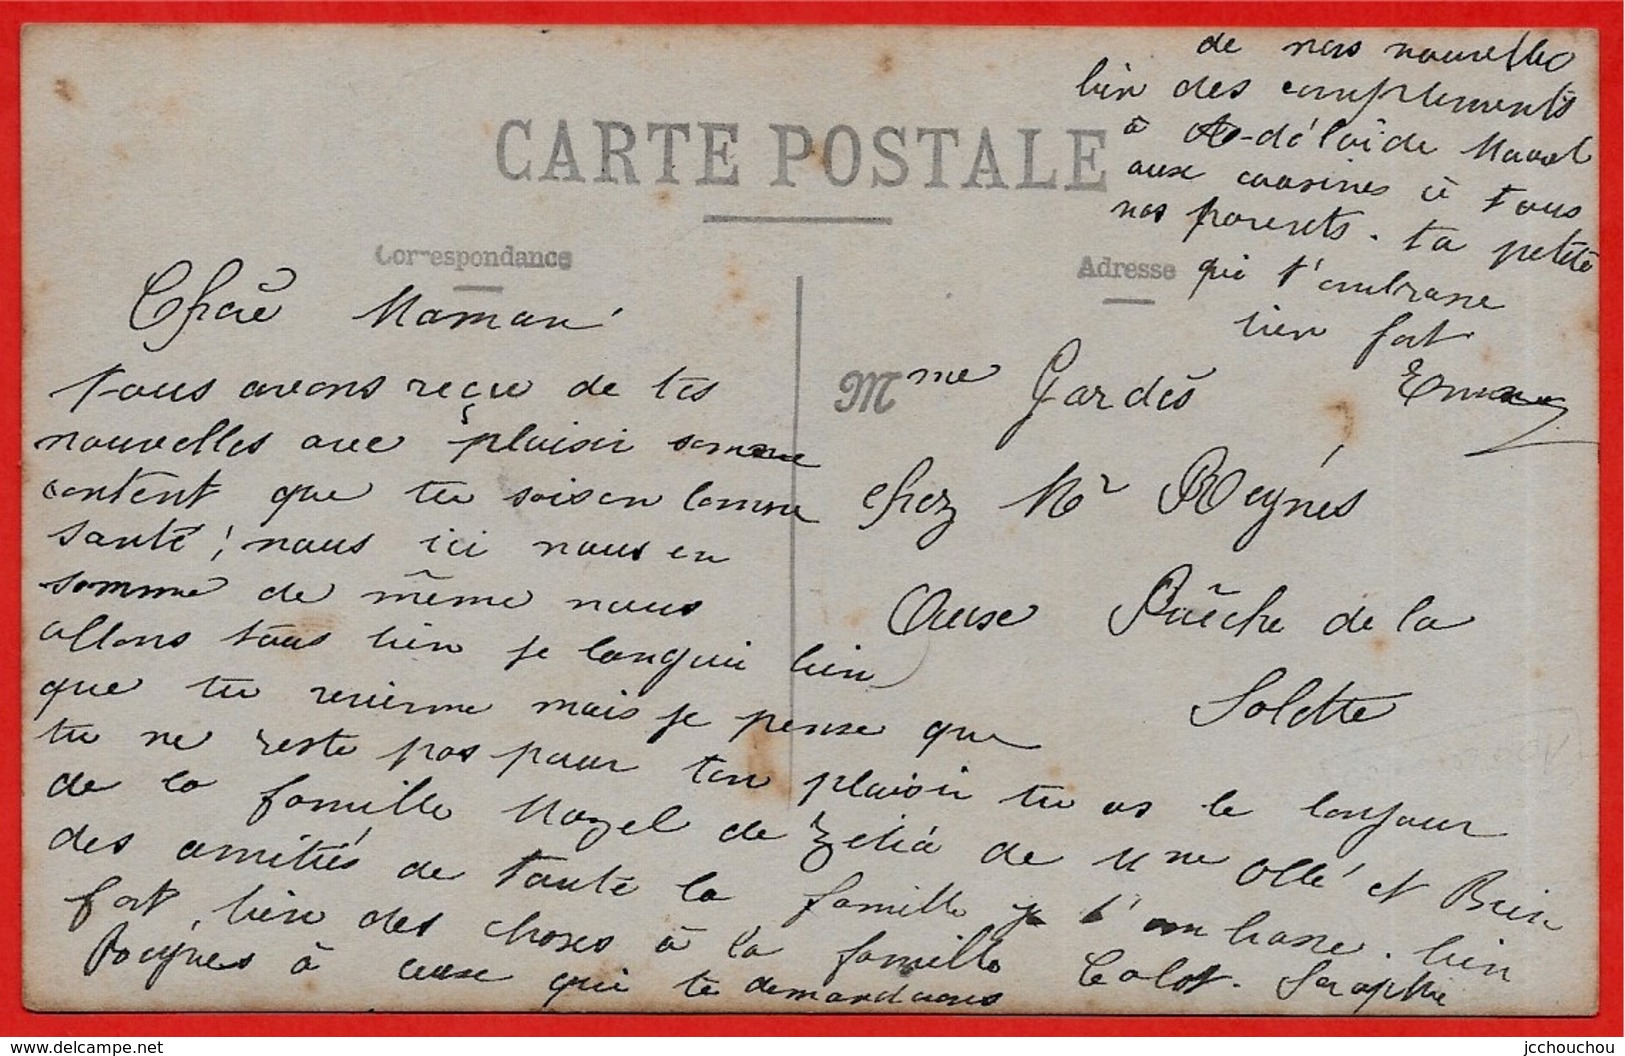 CARTE POSTALE
Correspondance
Adresse
Chère Maman
nous avons reçu de tes
nouvelles avec plaisir somme
content que tu sois en bonne
santé, nous ici nous en
somme de même nous
allons tous bien je languis bien
que tu revienne mais je pense que
tu ne reste pas pour ton plaisir tu as le bonjour
de la famille Mazel de Zélia de Mme Ollé et Bien
des amitiés de toute la famille je t'embrasse bien
fort, bien des choses à la famille Colot. Séraphie
Reynes à ceux qui te demandrons
Mme Gardès
chez Mr Reynés
Creuse Puèche de la
Solette
de nos nouvelles
bien des compléments
à A-délaïde Mavel
aux cousines à tous
nos parents. ta petite
qui t'embrasse
bien fort
Emma
jcchouchou
www.delcampe.net